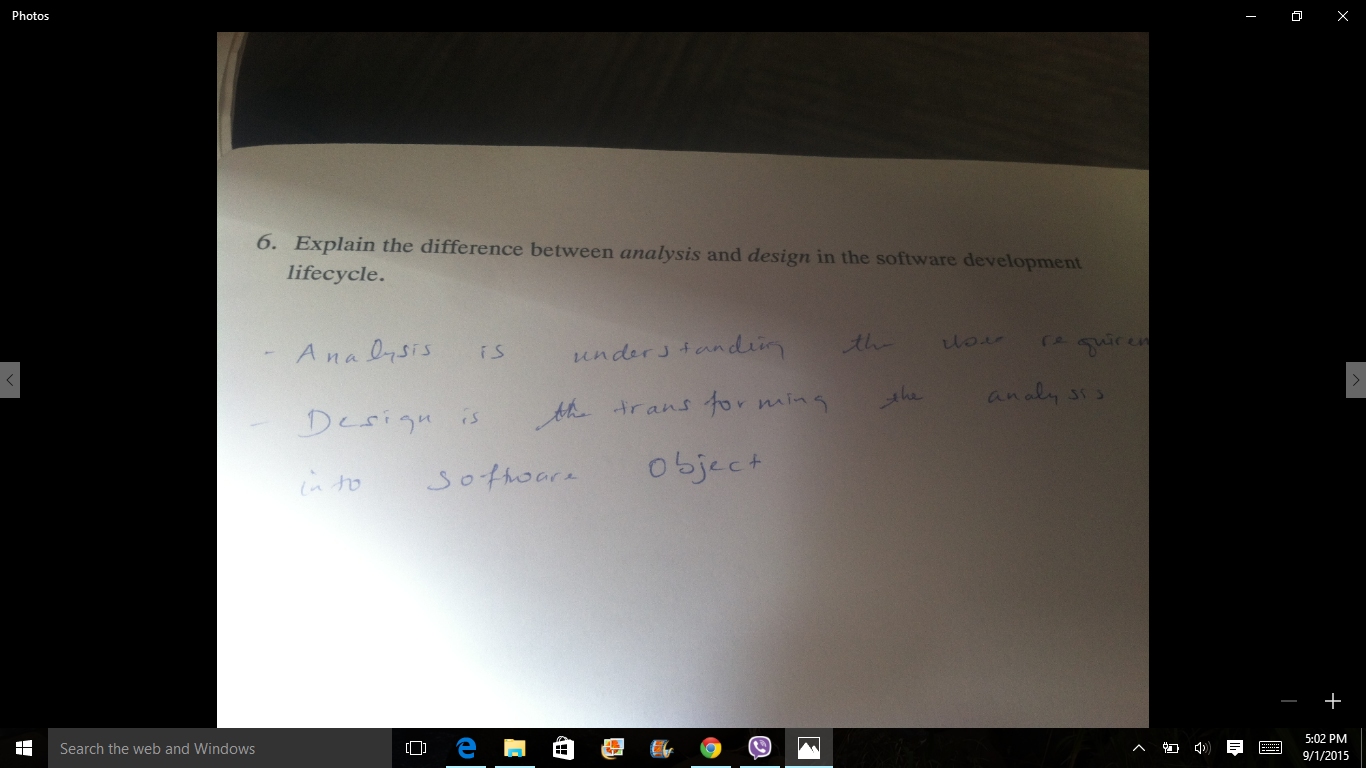 Photos
6. Explain the difference between analysis and design in the software development
lifecycle.
- Analysis is understanding the user requirem
- Design is the transforming the analysis
into software Object
Search the web and Windows
5:02 PM
9/1/2015